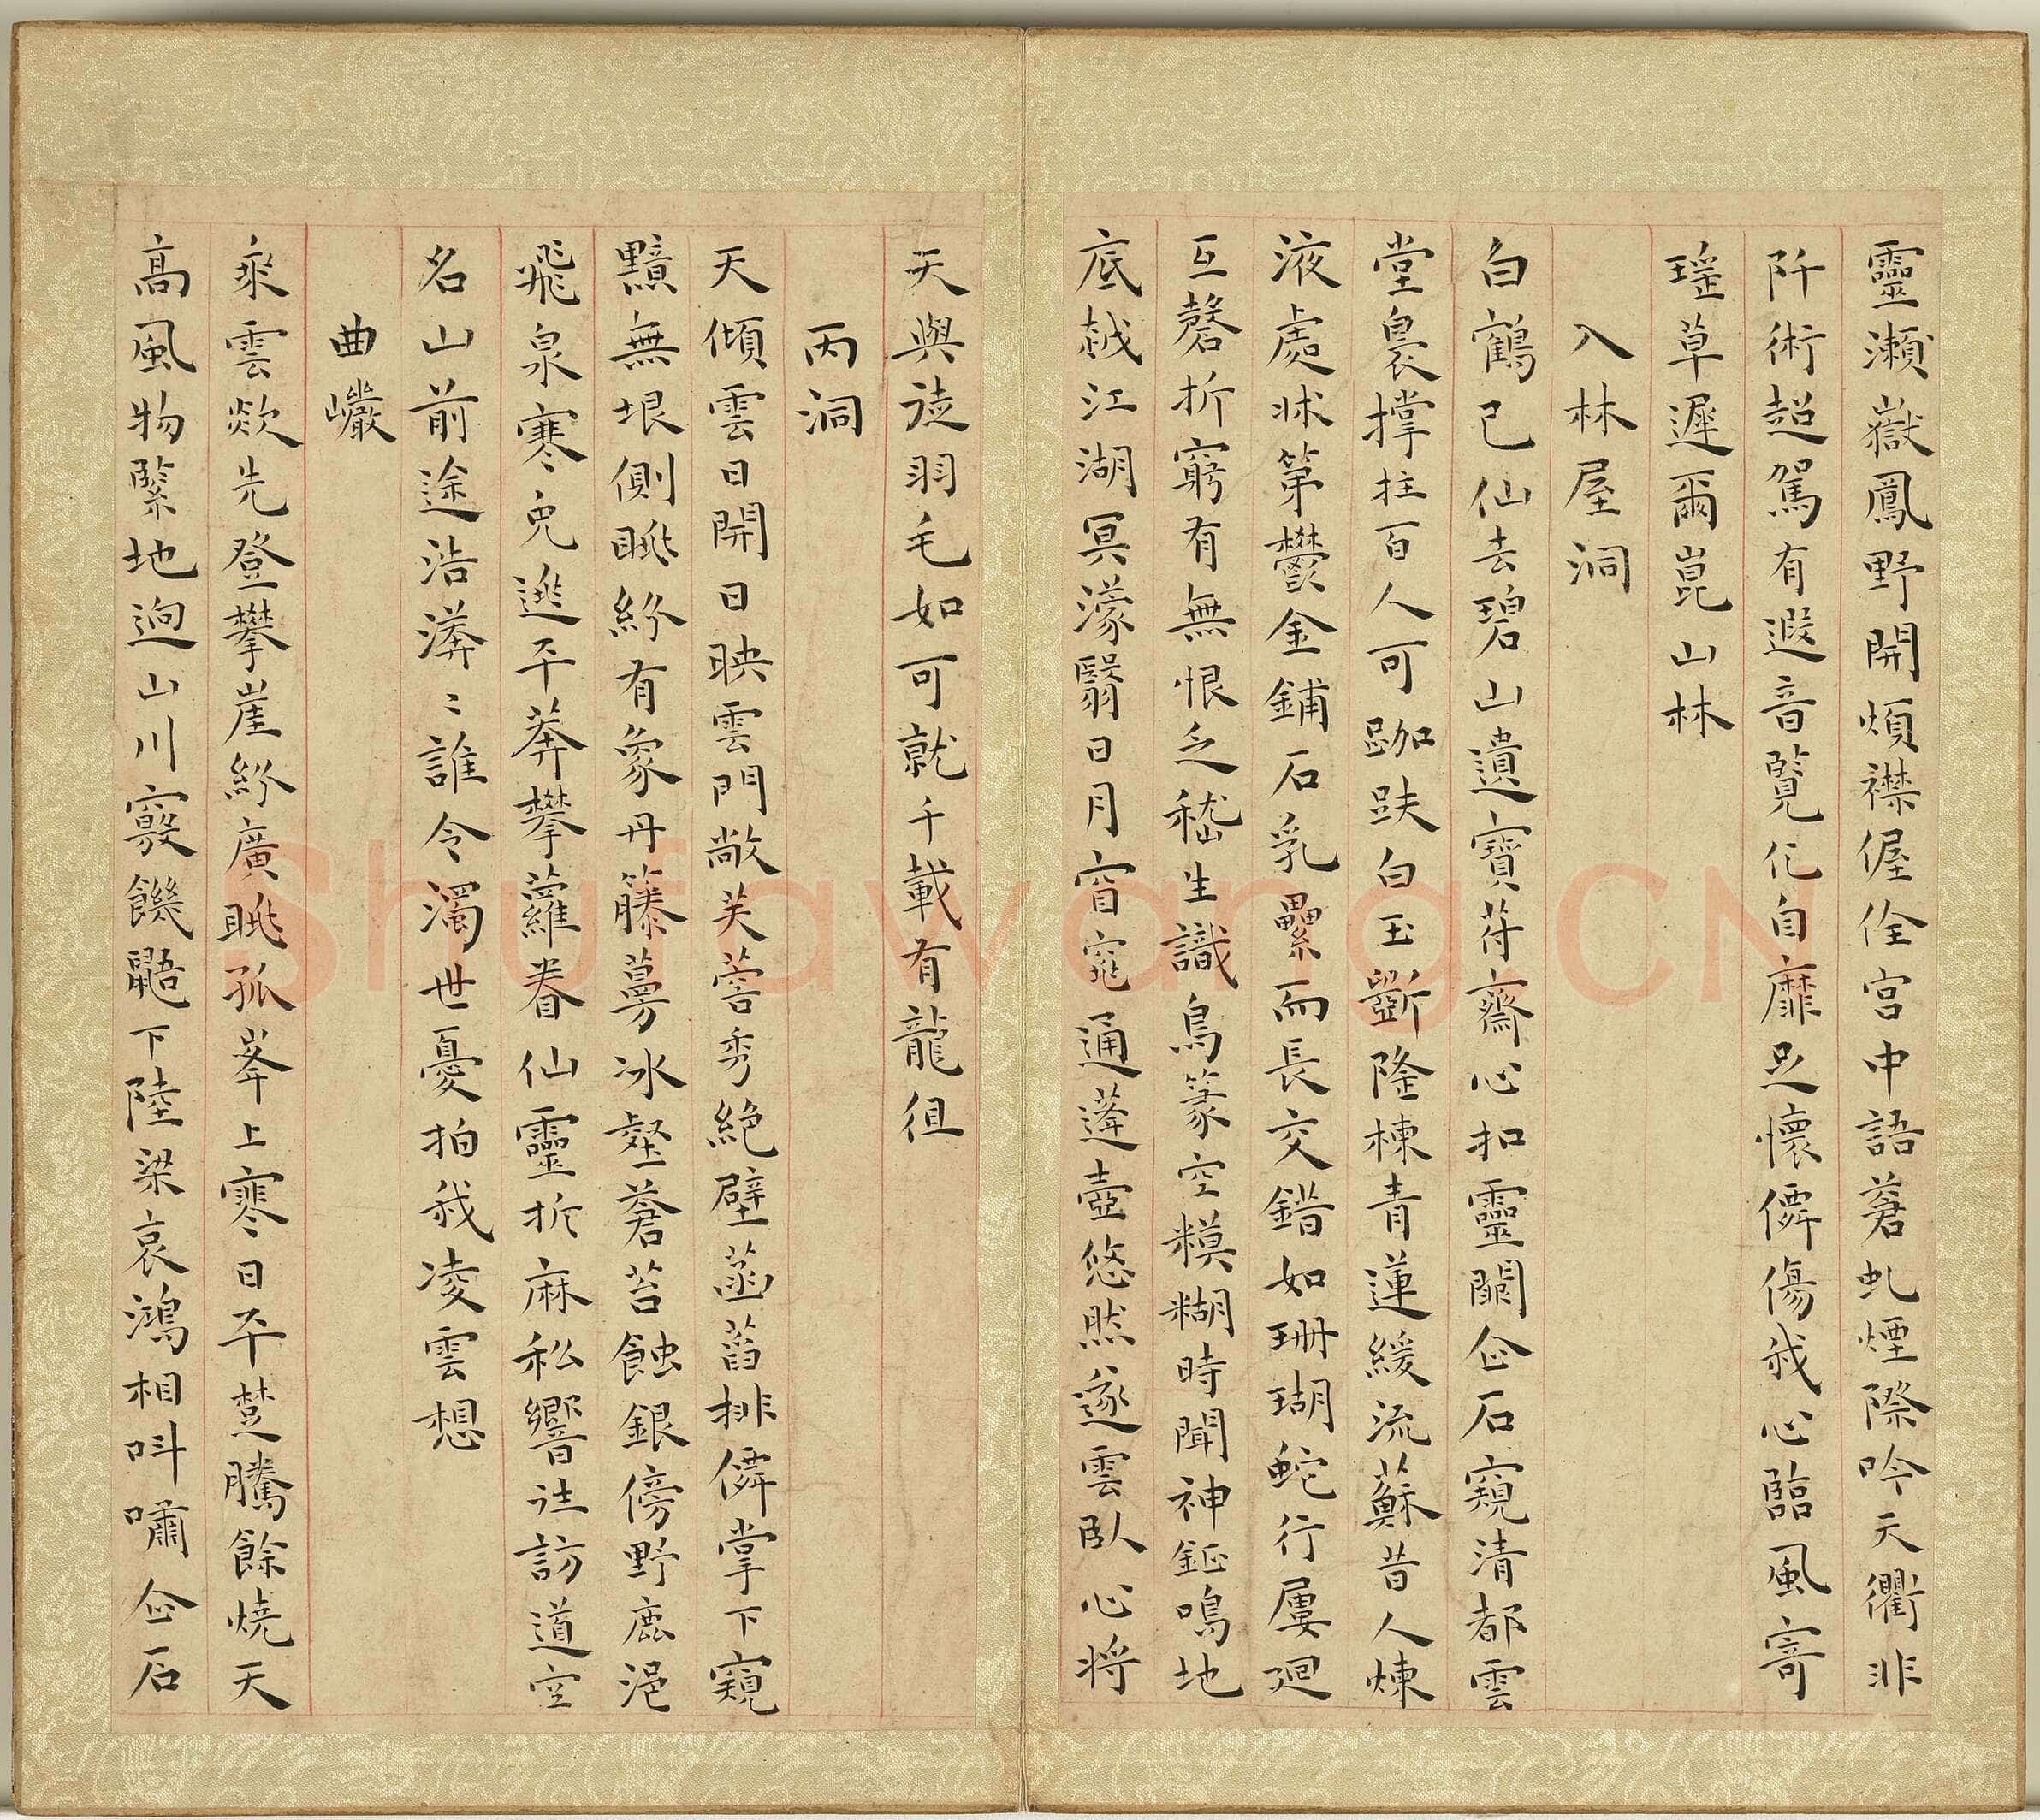 靈瀨嶽鳳野開煩襟偓佺宮中語蒼虬煙際吟天衢非
阡術超駕有遐音覽化自靡足懷儛傷我心臨風寄
瑤草遲爾崑山林
入林屋洞
白鶴已仙去碧山遺寶苻齋心扣靈關企石窺清都雲
堂裊撑拄百人可跏趺白玉斲隆棟青蓮緩流蘇昔人煉
液處牀第鬱金鋪石乳纍而長交錯如珊瑚蛇行屢廻
互磬折窮有無恨乏嵇生識鳥篆空糢糊時聞神鉦鳴地
底越江湖冥濛翳日月窅窕通蓬壺悠然遂雲臥心將
天與徒羽毛如可就千載有龍徂
丙洞
天傾雲日開日映雲門敞芙蓉秀絕壁菡萏排儛掌下窺
黮無垠側眺紛有象丹籐蔓冰壑蒼苔蝕銀傍野鹿浥
飛泉寒兔逃平莽攀蘿眷仙靈折麻私響往訪道空
名山前途浩漭〻誰令濁世憂拍我凌雲想
曲巖
乘雲欻先登攀崖紛廣眺孤峯上寒日平楚騰餘燒天
高風物緊地迥山川竅饑鼯下陸梁哀鴻相叫嘯企石
Shufawang.CN